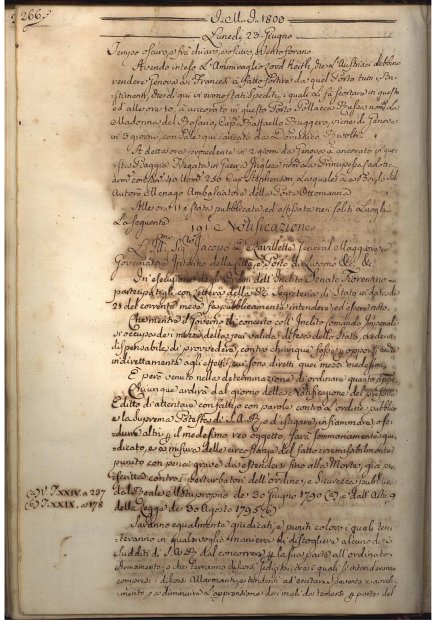 266.
I.M.I. 1800
Lunedi 23 Giugno
Tempo oscuro, e frà chiaro, e oscuro, Vento forano
Avendo inteso l'Ammiraglio Lord Keith, che i Austriaci debbono
rendere Genova ai Francesi à fatto sortire da quel Porto tutti i Ba-
stimenti, che di qui vi erono stati spediti, i quali gli fà scortare in questo
ed alle ore 10. à ancorato in questo Porto Pollacca Russa nomta La
Madonna del Rosario, Cap. Raffaello Ruggero, viene di Genova
in 3 giorni con
A dett'ora proveniente in 2 giorni da Genova à ancorato in que-
sta Spiaggia Fregata da Guerra Inglese nomta La Principessa
Cap. Stephenson la quale à a bordo
Ambasciatore della Porta Ottomanna
Alle ore 11 è stata pubblicata, ed affissata nei soliti Luoghi
La seguente
191 Notificazione
L'Ill. Sig. Jacopo de Lavillette General Maggiore, e
Governatore Interino della Città, e Porto di Livorno &c. &c.
In esecuzione degli Ordini dell'Inclito Senato Fiorentino
partecipatigli con Lettera della Segreteria di Stato in data de'
21 del corrente mese fà pubblicamente intendere, ed espone noto
Che mentre il Governo di concerto coll'Inclito Comando Imperiale
si occupa dei mezzi della più valida difesa dello Stato, crede in-
dispensabile di provvedere, contro chiunque osasse opporsi anche
indirettamente agli effetti, cui sono diretti quei mezzi medesimi
E però venuto nella determinazione di ordinare quanto appo
Chiunque ardirà dal giorno della Notificazione del presente
Editto di attentare con fatti, o con parole contro l'ordine pubblico
e la Suprema Potestà di S.A.R., o di istigare, infiammare, o se-
durre altri, il medesimo reo oggetto, sarà sommariamente giu-
dicato, e a misura delle circostanze del fatto irremissibilmente
punito con pena grave da estendersi fino alla Morte, già pre-
scritta contro i perturbatori dell'ordine, e sicurezza pubblica
dal Reale Motuproprio de' 30 Giugno 1790 e dall'Artic. 9
della Legge de' 30 Agosto 1795
T. XXIV. a 287
T. XXIX. a 178
Saranno egualmente giudicati, e puniti coloro i quali ten-
teranno in qualsivoglia maniera di distogliere alcuno dei
Sudditi di S.A.R. dal concorrere per la sua parte all'ordinato
Armamento, o che terranno discorsi sediziosi, trai quali s'intenderanno
compresi i discorsi Allarmanti, e tendenti ad eccitare spavento, e avvili-
mento, o a diminuire l'apprensione dei mali da temersi per parte del